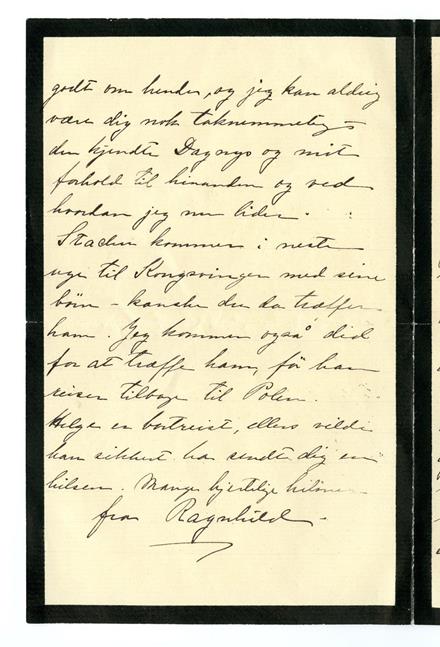 godt om hende, og jeg kan aldrig
være dig nok taknemmelig –
du kjendte Dagnys og mit
forhold til hinanden og ved
hvordan jeg nu lider.
Stachu kommer i neste
uge til Kongsvinger med sine
børn – kanske du da træffer
ham. Jeg kommer også did
for at træffe ham, før han
reiser tilbage til Polen.
Helge er bortreist, ellers vilde
han sikkert ha sendt dig en
hilsen. Mange hjertelige hilsner
fra Ragnhild.